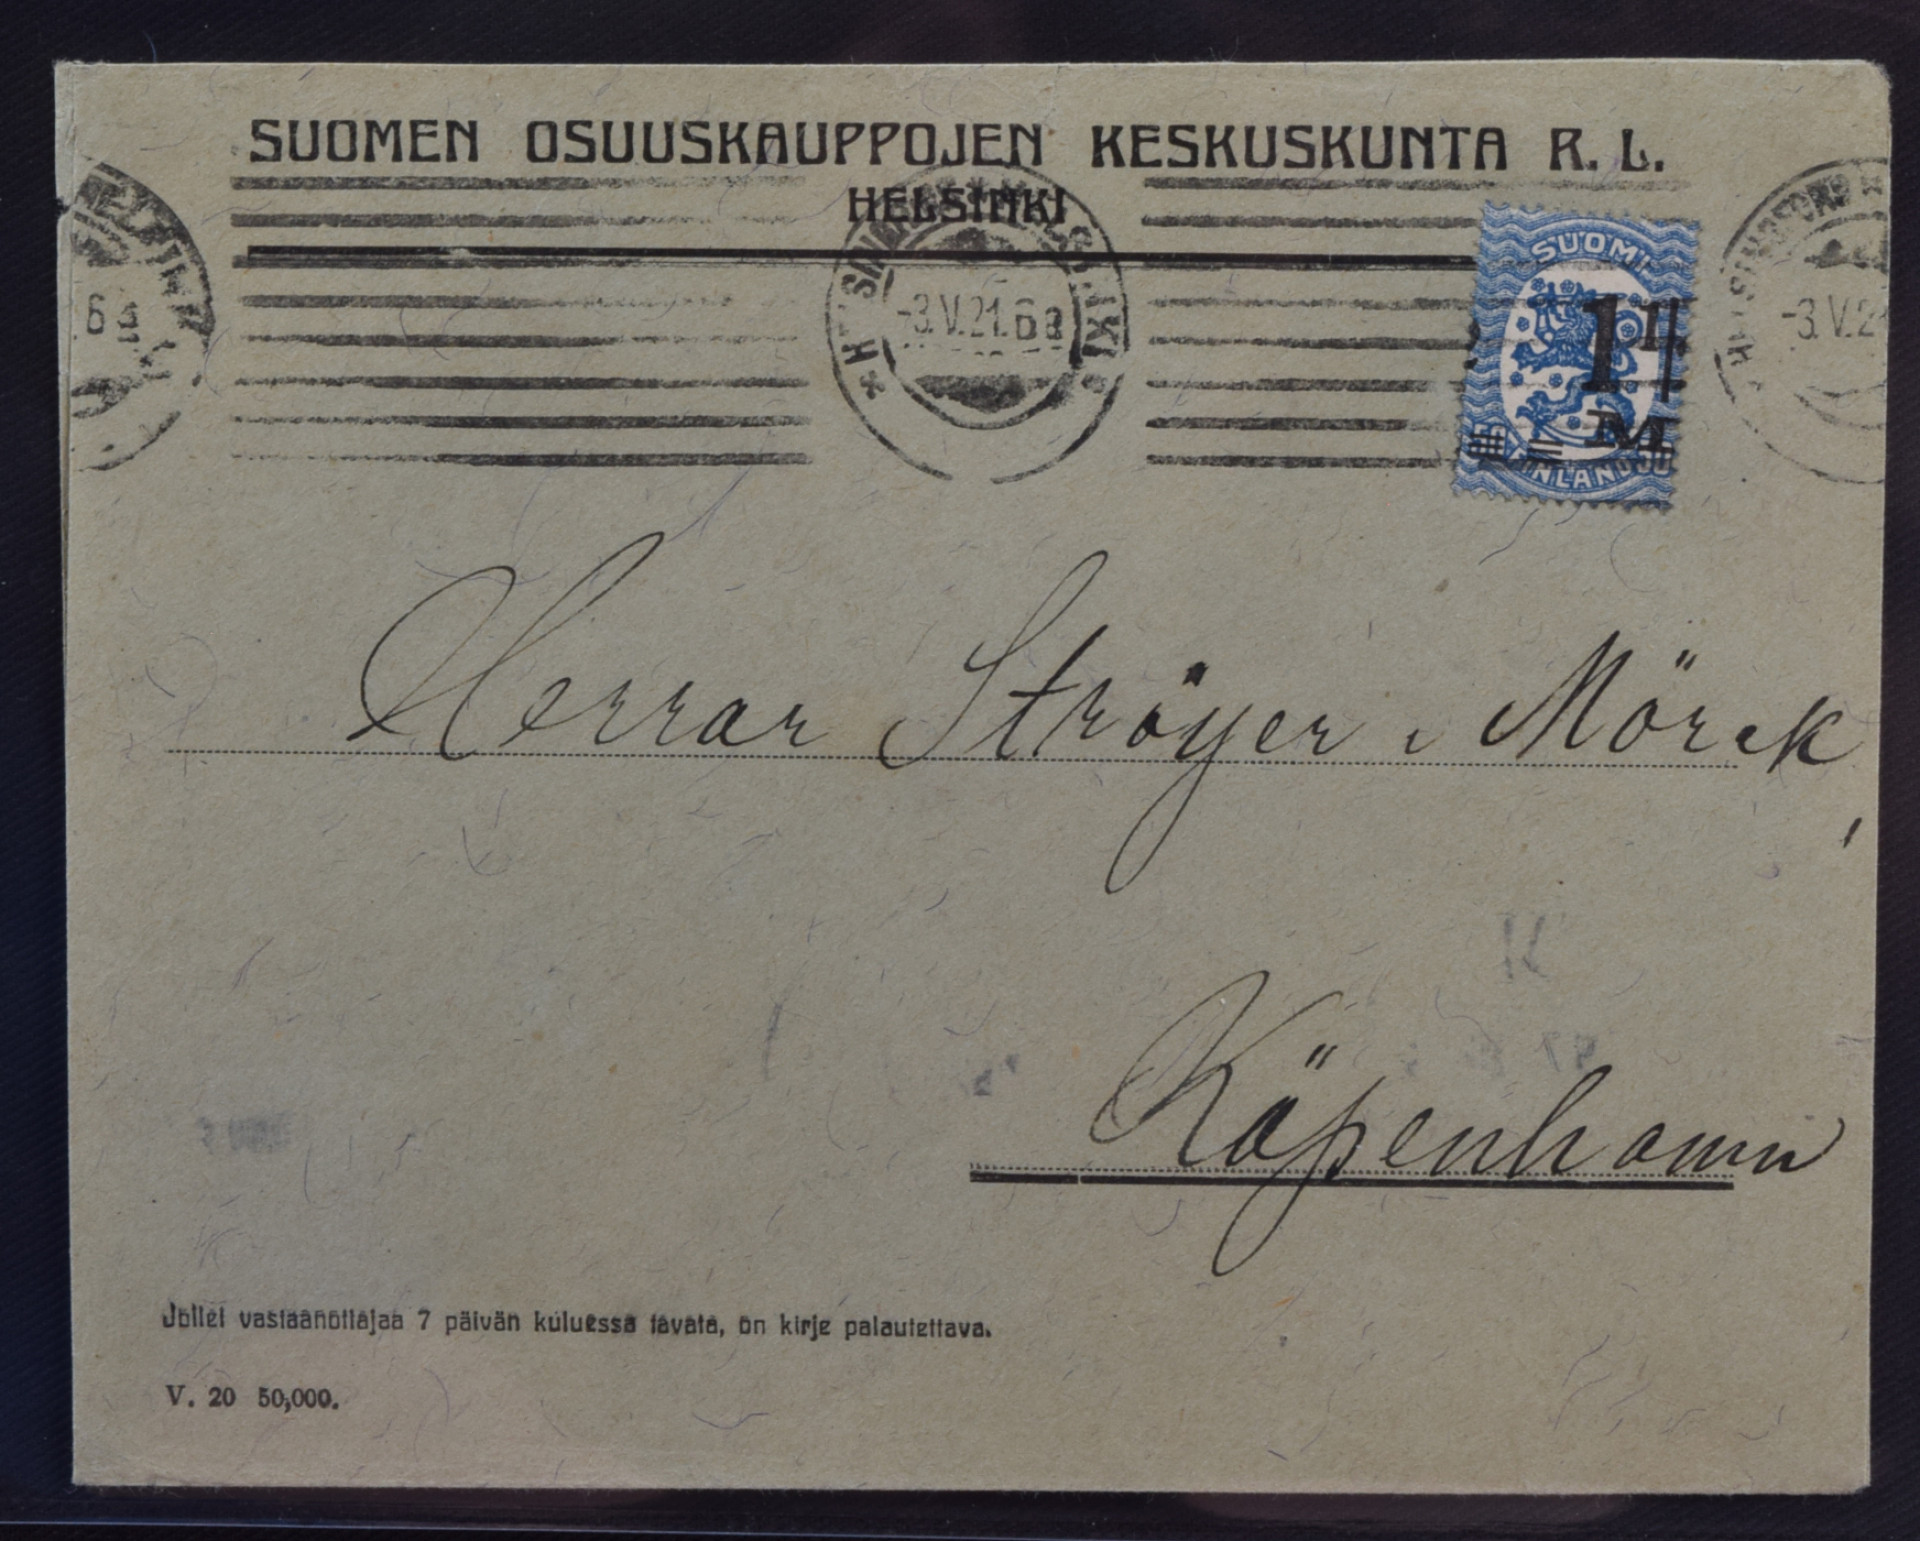 SUOMEN OSUUSKAUPPOJEN KESKUSKUNTA R. L.
HELSINKI
-3.V.21.6a
SUOMI
1 1/
M
50 50
FINLAND
-3.V.2
Herrar Ströyer & Mörck
Köpenhamn
Jollei vastaanottajaa 7 päivän kuluessa tavata, on kirje palautettava.
V. 20 50,000.